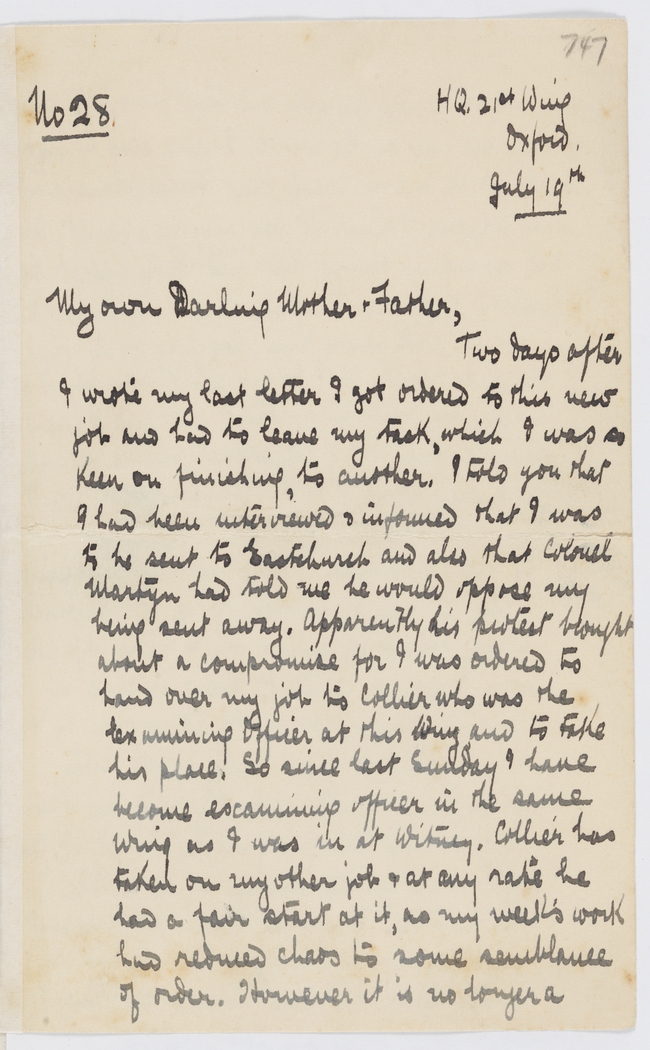 747
No 28.
HQ. 21st Wing
Oxford.
July 19th
My own Darling Mother + Father,
Two days after
I wrote my last letter I got ordered to this new
job and had to leave my task, which I was so
keen on finishing, to another. I told you that
I had been interviewed & informed that I was
to be sent to Eastchurch and also that Colonel
Martyn had told me he would oppose my
being sent away. Apparently his protest brought
about a compromise for I was ordered to
hand over my job to Collier who was the
Examining Officer at this Wing and to take
his place. So since last Sunday I have
become examining officer in the same
Wing as I was in at Witney. Collier has
taken on my other job + at any rate he
had a fair start at it, as my week's work
had reduced chaos to some semblance
of order. However it is no longer a